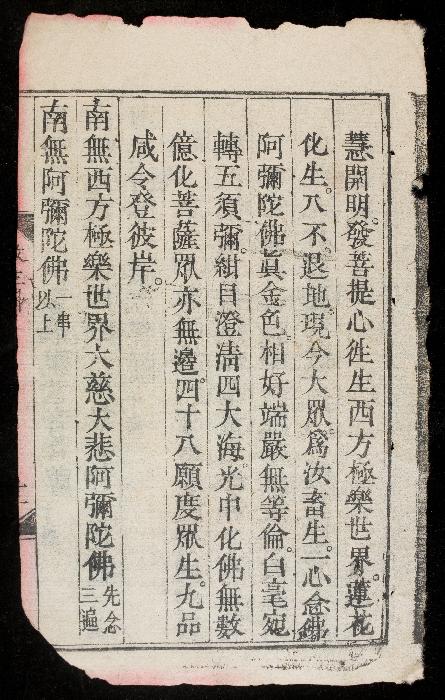 慧開明。發菩提心徃生西方極樂世界。蓮花
化生。入不退地。現今大眾爲汝畜生。一心念佛
阿彌陀佛眞金色。相好端嚴無等倫。白毫宛
轉五須彌。紺目澄清四大海。光中化佛無數
億。化菩薩眾亦無邊。四十八願度眾生。九品
咸令登彼岸。
南無西方極樂世界大慈大悲阿彌陀佛 先念三遍
南無阿彌陀佛 一串以上